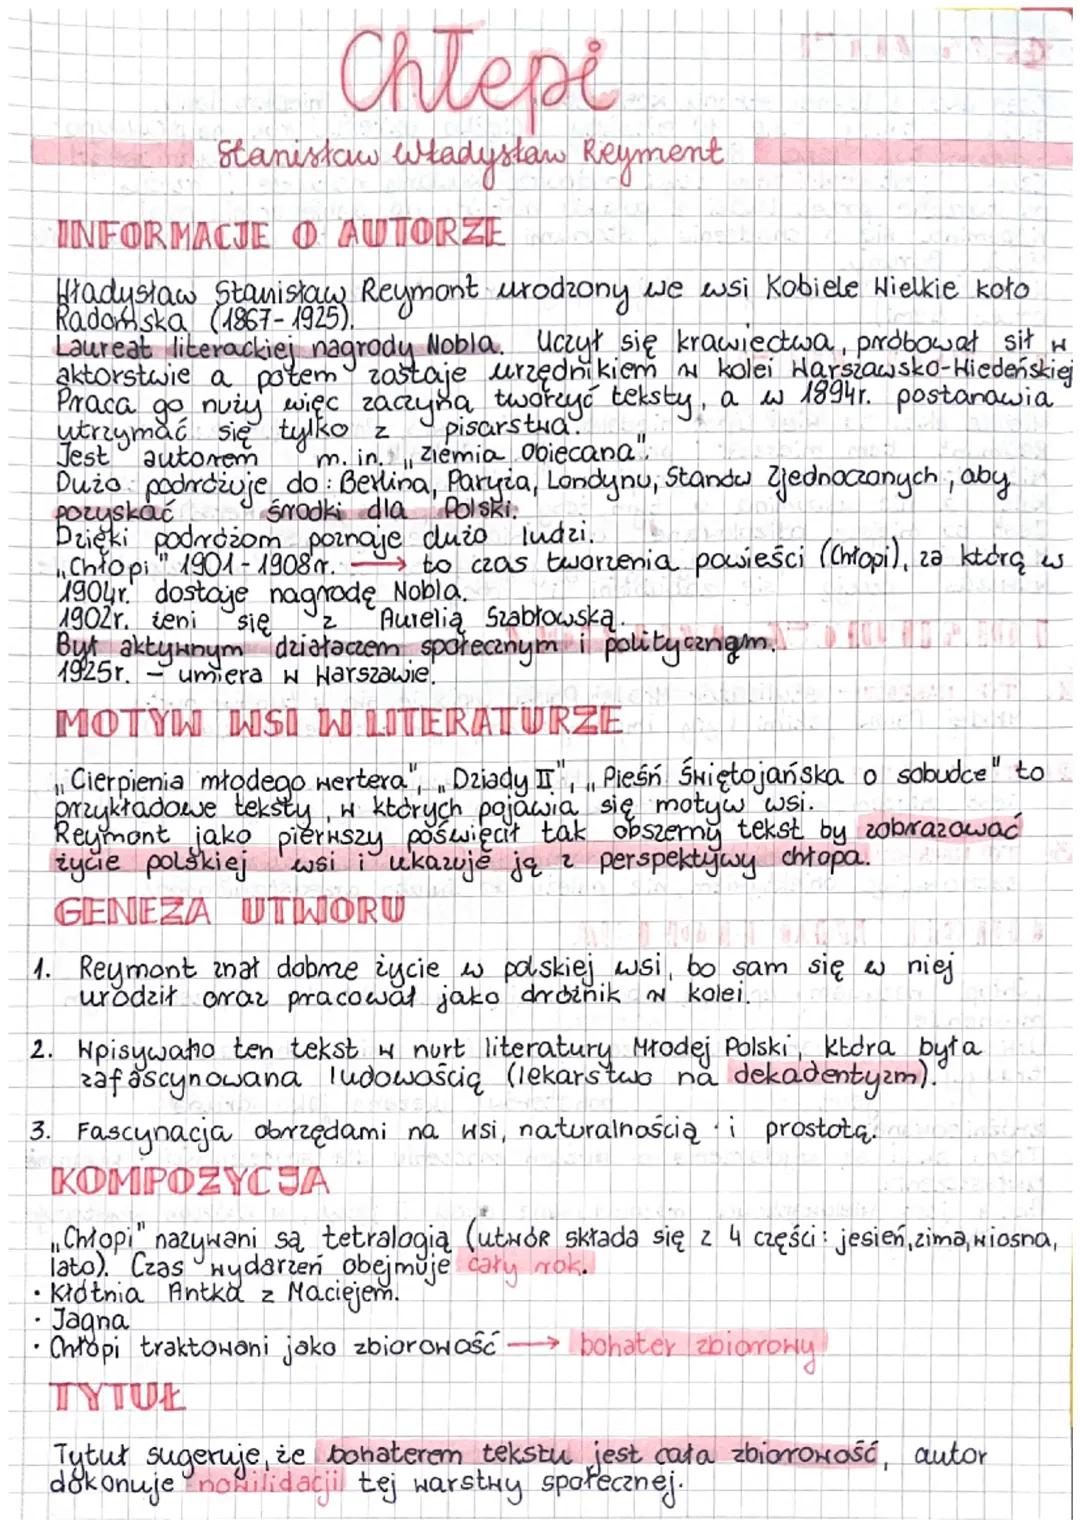 Chłopi
Stanisław Władysław Reymont
INFORMACJE O AUTORZE
Władysław Stanisław Reymont urodzony we wsi Kobiele Wielkie koło
Radomska (1867-1925).
Laureat literackiej nagrody Nobla. Uczył się krawiectwa, próbował sił w
aktorstwie a potem zostaje urzędnikiem w kolei Warszawsko-Wiedeńskiej
Praca go nuży więc zaczyna tworzyć teksty, a w 1894r. postanawia
utrzymać się tylko z pisarstwa.
Jest autorem m.in. „Ziemia Obiecana".
Dużo podróżuje do: Berlina, Paryża, Londynu, Stanów Zjednoczonych, aby
pozyskać środki dla Polski.
Dzięki podróżom poznaje dużo ludzi.
„Chłopi" 1901-1908r. → to czas tworzenia powieści (Chłopi), za którą w
1904r. dostaje nagrodę Nobla.
1902r. żeni się z Aurelią Szabłowską.
Był aktywnym działaczem społecznym i politycznym.
1925r. - umiera w Warszawie.
MOTYW WSI W LITERATURZE
„Cierpienia młodego Wertera", „Dziady II", „Pieśń Świętojańska o sobudce" to
przykładowe teksty, w których pojawia się motyw wsi.
Reymont jako pierwszy poświęcił tak obszerny tekst by zobrazować
życie polskiej wsi i ukazuje ją z perspektywy chłopa.
GENEZA UTWORU
1. Reymont znał dobrze życie w polskiej wsi, bo sam się w niej
urodził oraz pracował jako dróżnik w kolei.
2. Wpisywano ten tekst w nurt literatury Młodej Polski, która była
zafascynowana ludowością (lekarstwo na dekadentyzm).
3. Fascynacja obrzędami na wsi, naturalnością i prostotą.
KOMPOZYCJA
„Chłopi" nazywani są tetralogią (utwór składa się z 4 części: jesień, zima, wiosna,
lato). Czas wydarzeń obejmuje cały rok.
· Kłótnia Antka z Maciejem.
· Jagna
· Chłopi traktowani jako zbiorowość → bohater zbiorowy
TYTUŁ
Tytuł sugeruje, że bohaterem tekstu jest cała zbiorowość, autor
dokonuje nowilidacji tej warstwy społecznej.